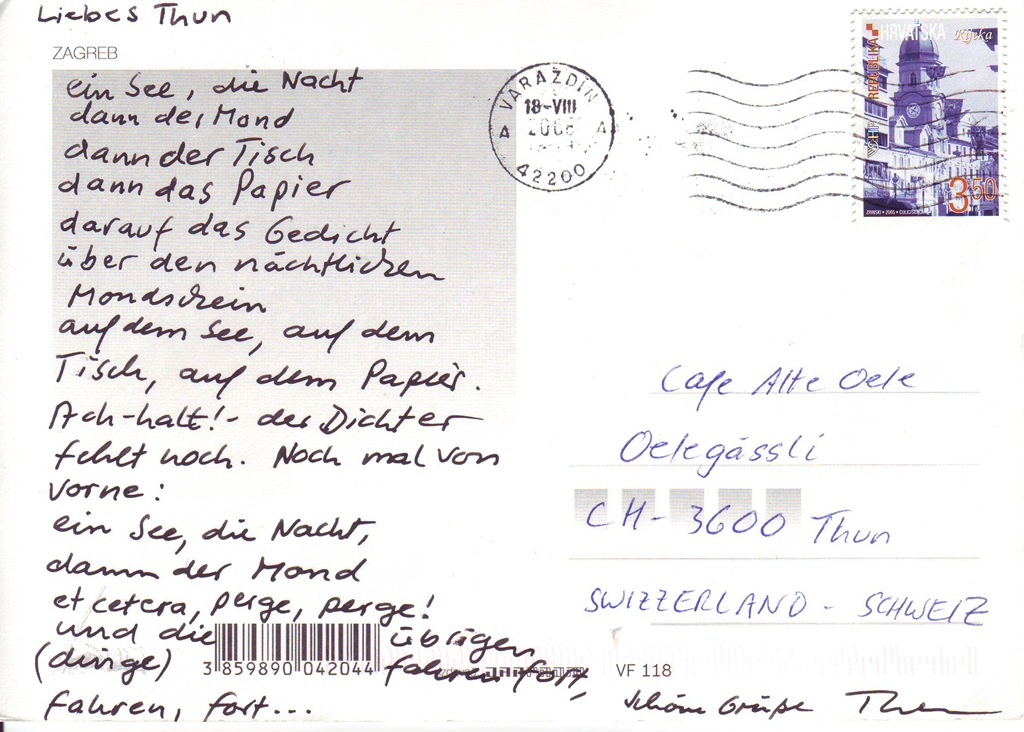 Liebes Thun
ZAGREB
ein See, die Nacht
dann der Mond
dann der Tisch
dann das Papier
darauf das Gedicht
über den nächtlichen
Mondschein
auf dem See, auf dem
Tisch, auf dem Papier.
Ach-halt!- der Dichter
fehlt noch. Noch mal von
vorne:
ein See, die Nacht,
dann der Mond
et cetera, perge, perge!
und die übrigen
(dinge) fahren fort,
fahren, fort...
3 859890 042044
VF 118
Schöne Grüße
VARAŽDIN
18-VIII
A A
42200
REPUBLIKA HRVATSKA
Rijeka
3,50
Cafe Alte Oele
Oelegässli
CH-3600 Thun
SWIZZERLAND - SCHWEIZ